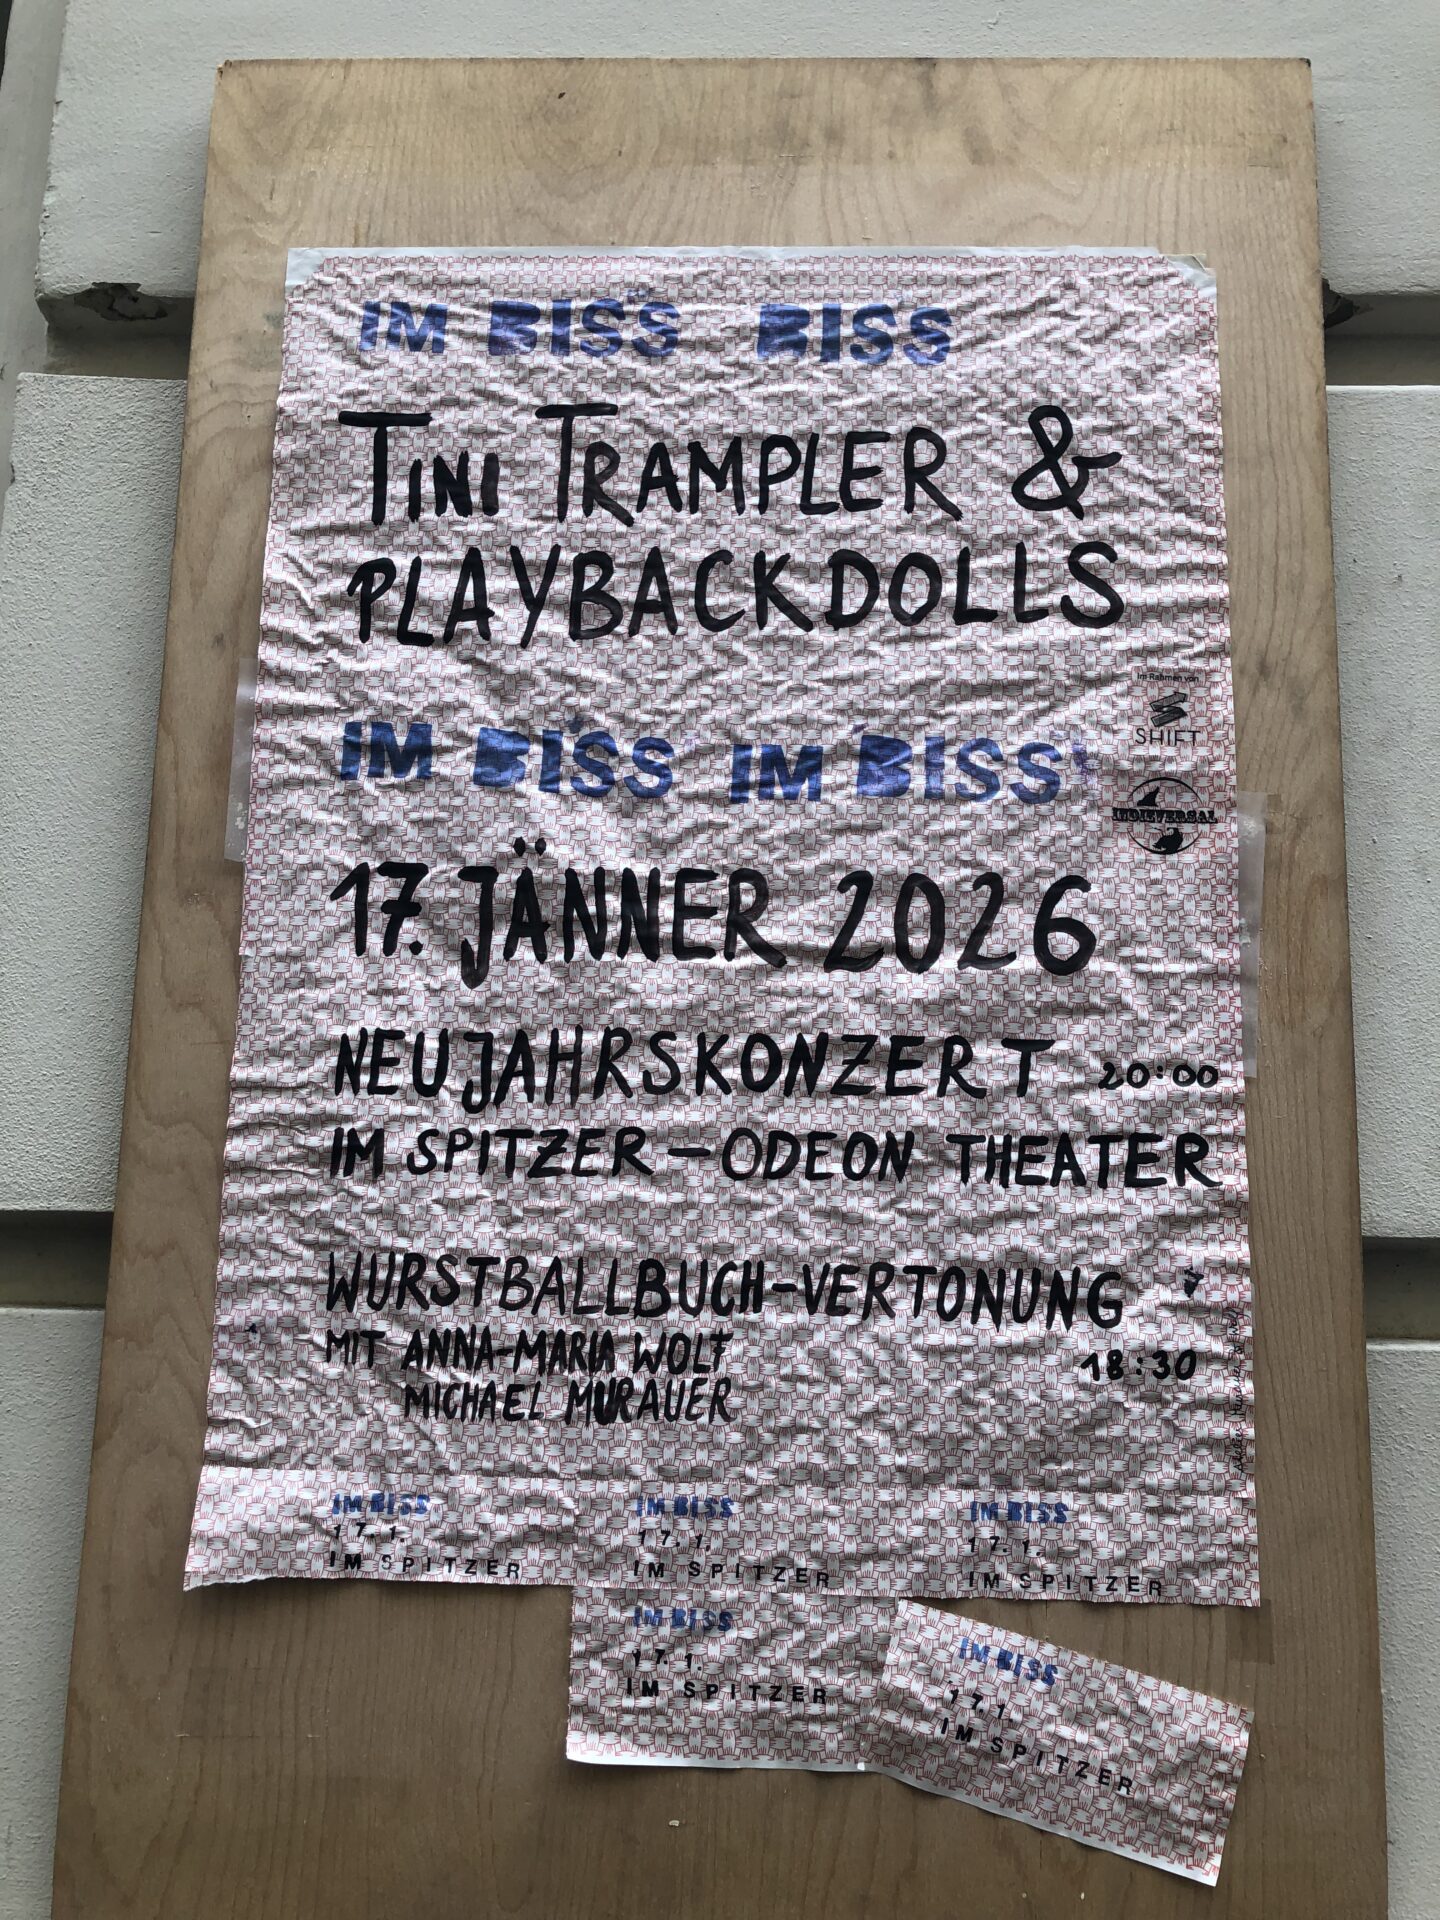 IM BISS BISS
TINI TRAMPLER &
PLAYBACKDOLLS
Im Rahmen von
SHIFT
IM BISS IM BISS
INDIEVERSAL
17. JÄNNER 2026
NEUJAHRSKONZERT 20:00
IM SPITZER – ODEON THEATER
WURSTBALLBUCH-VERTONUNG
MIT ANNA-MARIA WOLF
18:30
MICHAEL MURAUER
IM BISS
17.1.
IM SPITZER
IM BISS
17.1.
IM SPITZER
IM BISS
17.1.
IM SPITZER
IM BISS
17.1.
IM SPITZER
IM BISS
17.1.
IM SPITZER